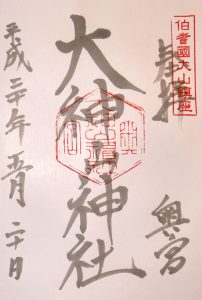 伯耆國大山鎮座
奉拝
奥宮
大神山神社
平成二十年五月二十日